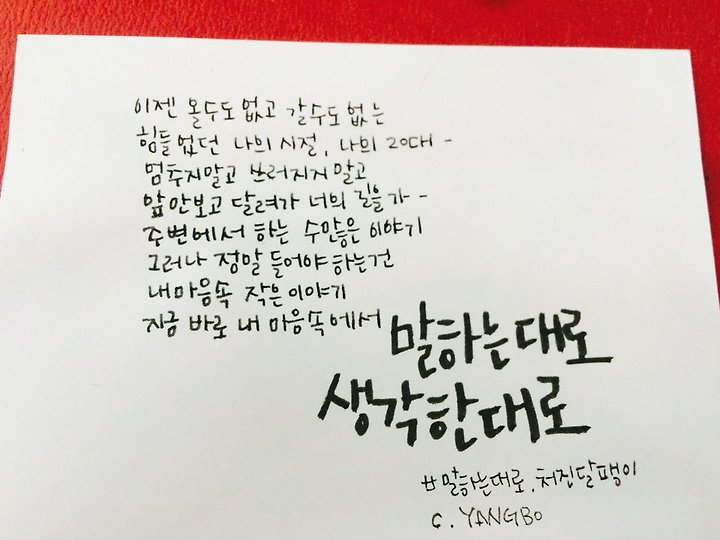 이젠 올수도 없고 갈수도 없는
힘들었던 나의 시절, 나의 20대 -
멈추지말고 쓰러지지말고
앞만보고 달려가 너의 길을 가 -
주변에서 하는 수많은 이야기
그러나 정말 들어야 하는건
내마음속 작은 이야기
지금 바로 내 마음속에서
말하는대로
생각한대로
#말하는대로, 처진달팽이
c. YANGBO